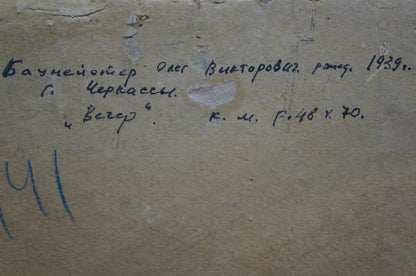 Баумейстер Олег Викторович. рожд. 1939 г.
г. Черкассы.
„Вечер". к. м. р. 48 х 70.
141